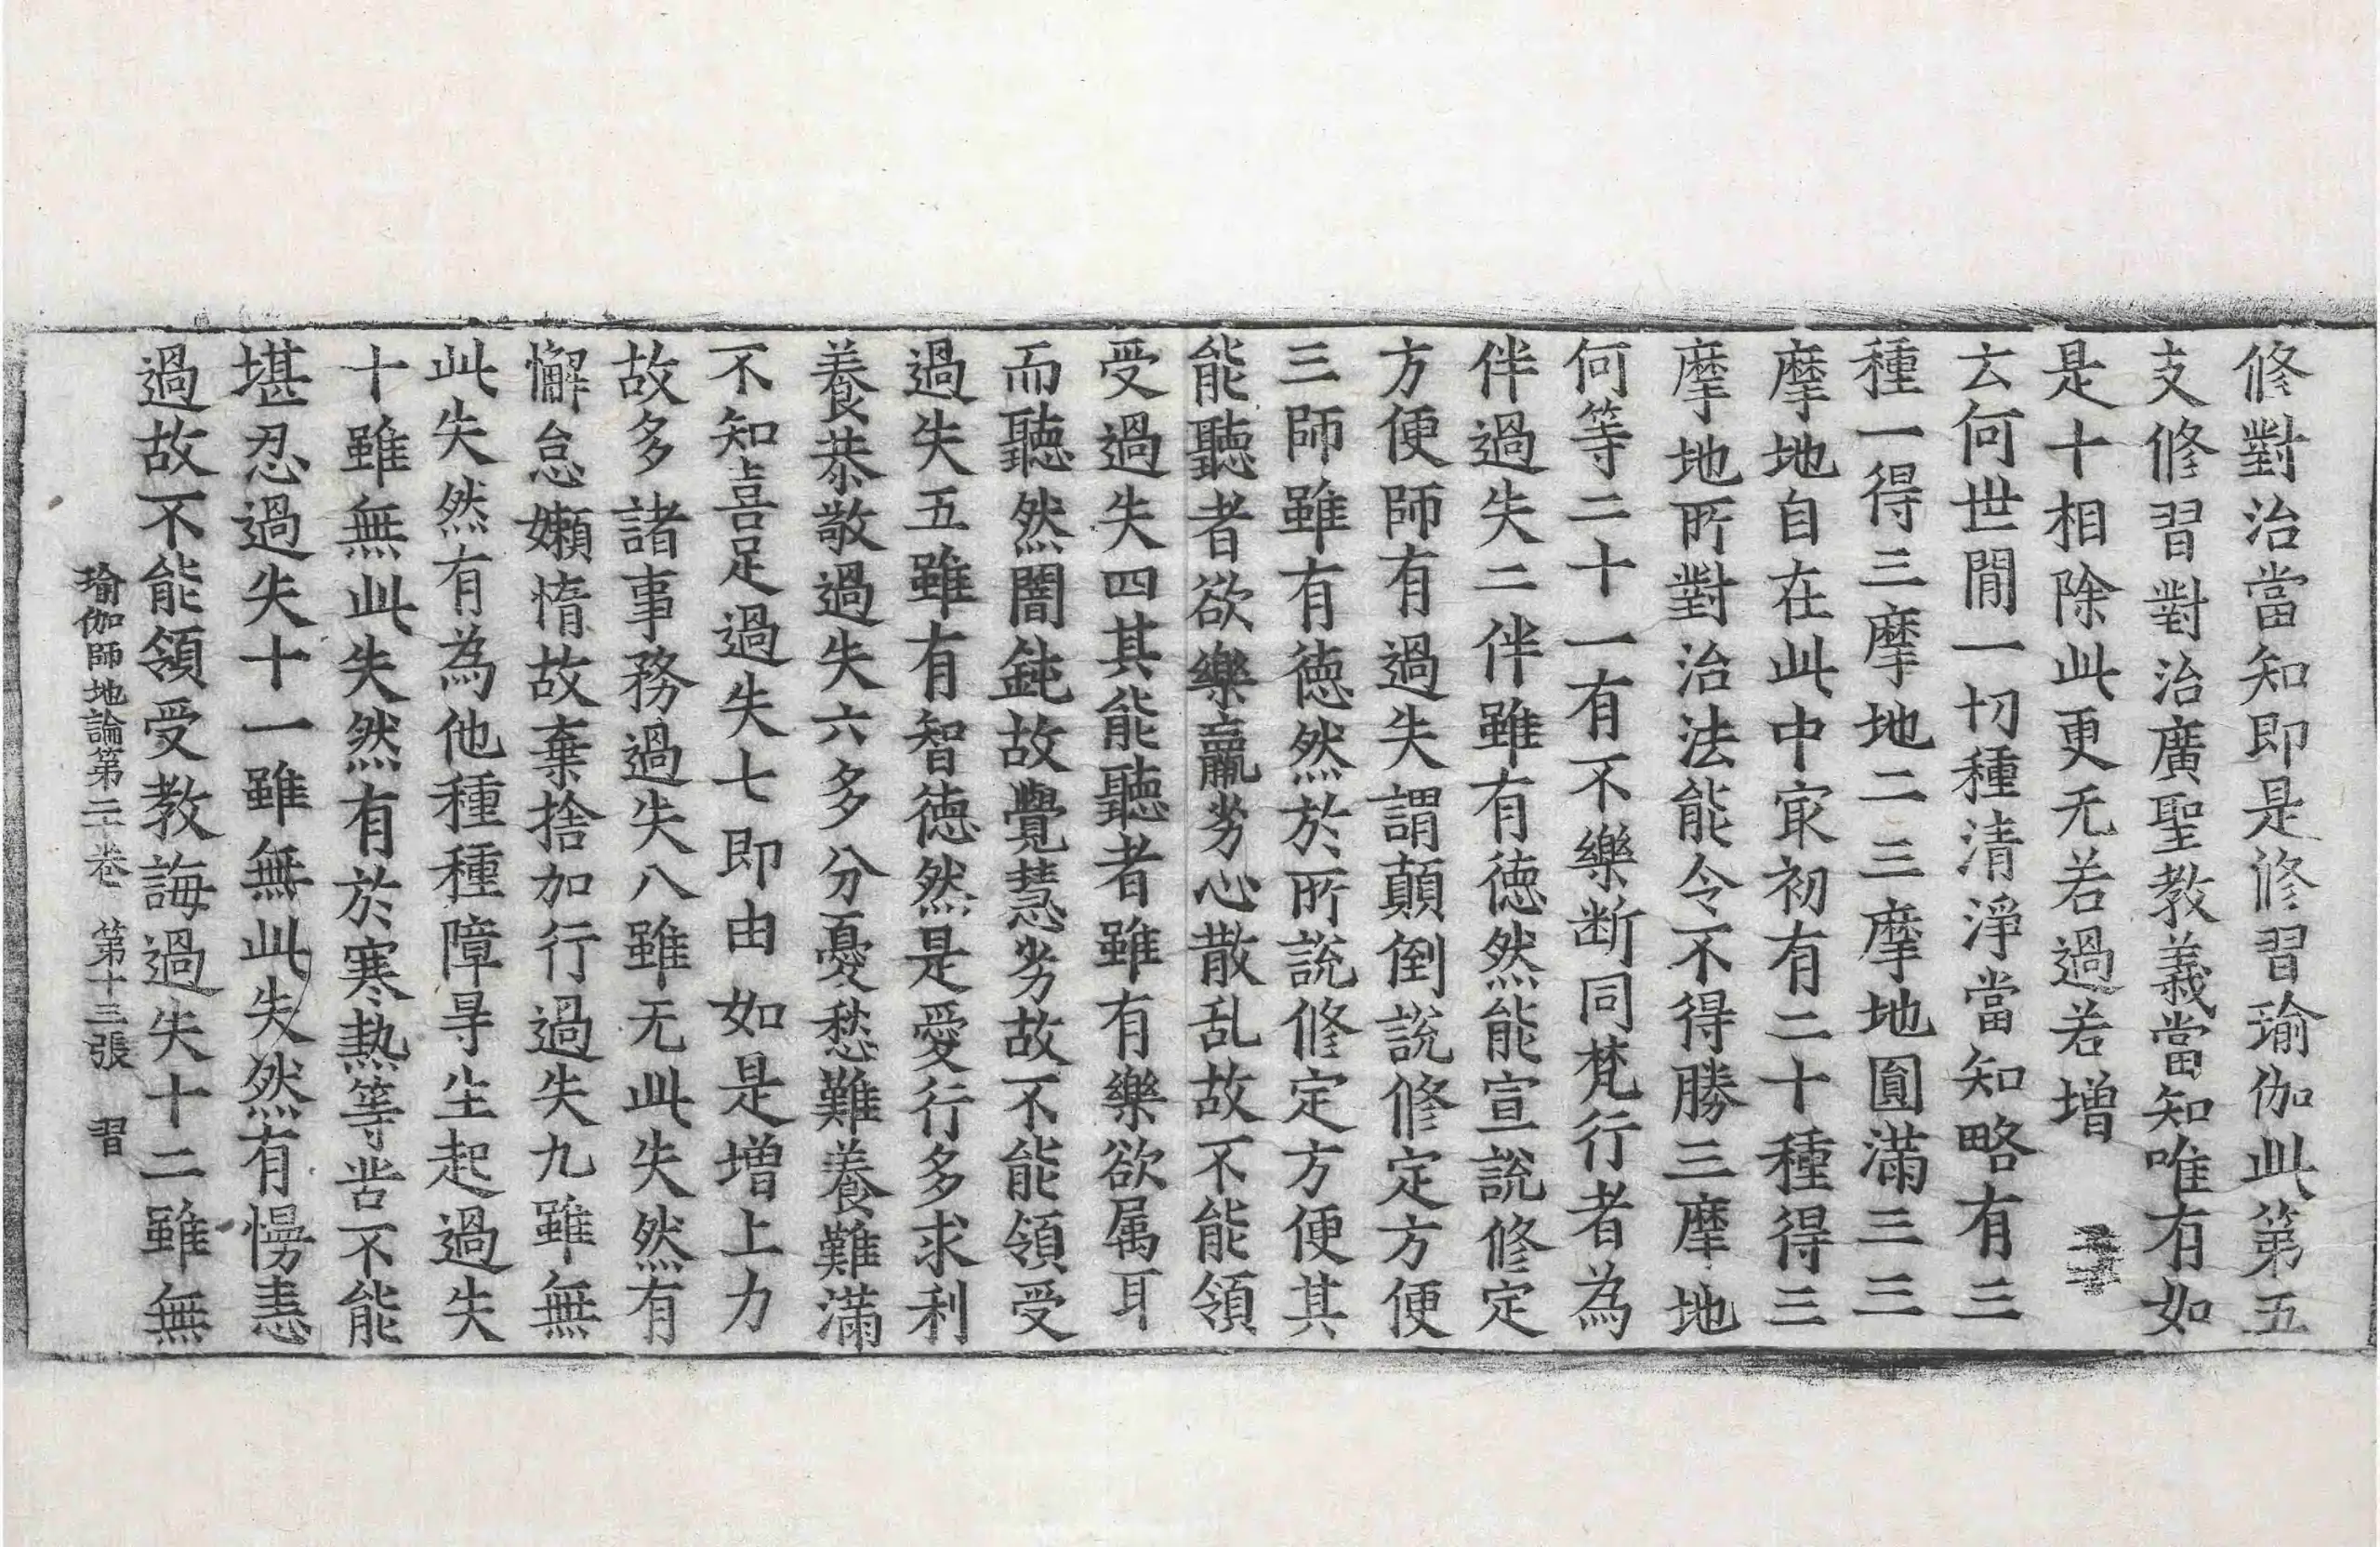 修對治當知即是修習瑜伽此第五
支修習對治廣聖教義當知唯有如
是十相除此更无若過若增
云何世間一切種清淨當知略有三
種一得三摩地二三摩地圓滿三三
摩地自在此中㝡初有二十種得三
摩地所對治法能令不得勝三摩地
何等二十一有不樂断同梵行者為
伴過失二伴雖有德然能宣說修定
方便師有過失謂顛倒說修定方便
三師雖有德然於所說修定方便其
能聽者欲樂羸劣心散乱故不能領
受過失四其能聽者雖有樂欲属耳
而聽然闇鈍故覺慧劣故不能領受
過失五雖有智德然是愛行多求利
養恭敬過失六多分憂愁難養難滿
不知喜足過失七即由如是增上力
故多諸事務過失八雖无此失然有
懈怠嬾惰故棄捨加行過失九雖無
此失然有為他種種障㝵生起過失
十雖無此失然有於寒熱等苦不能
堪忍過失十一雖無此失然有慢恚
過故不能領受教誨過失十二雖無
瑜伽師地論第二十卷 第十三張 習